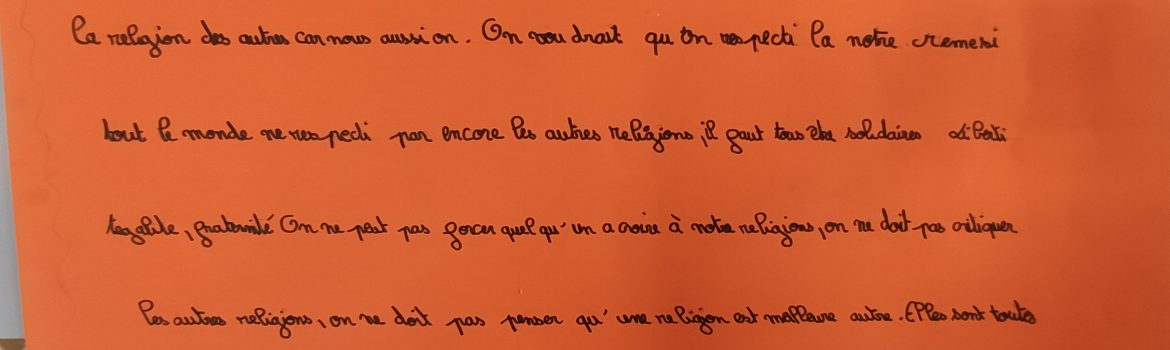 la religion des autres car nous aussi on. On voudrait qu'on respecti la notre cremesi
tout le monde ne respecti par encore les autres religions, il faut tous être solidaires Liberti
tegalite, fraternité On ne peut pas forcer quelqu'un a croire à notre religions, on ne doit pas critiquer
les autres religions, on ne doit pas penser qu'une religion est malleure autre. Elles sont toutes